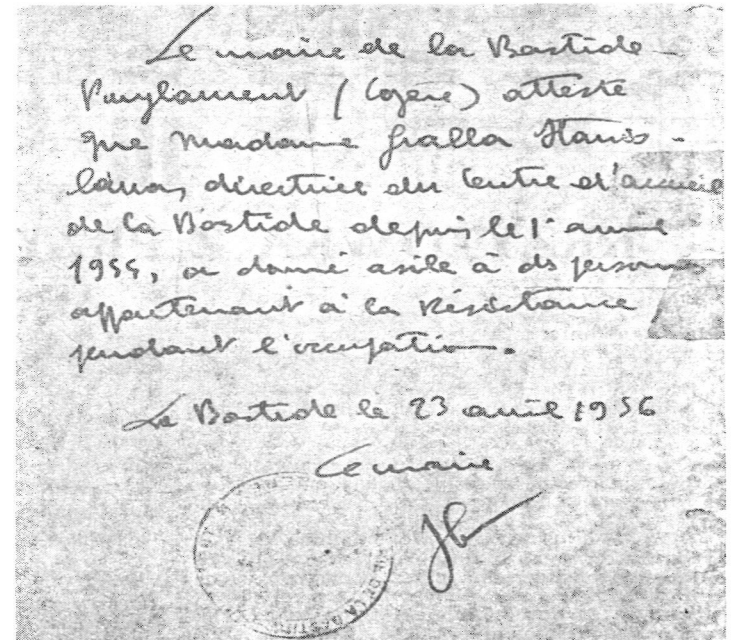 Le maire de la Bastide
Puylaurent (Lozère) atteste
que Madame Gralla Stanis-
lawa, directrice du Centre d'accueil
de la Bastide depuis le 1er avril
1955, a donné asile à des personnes
appartenant à la Résistance
pendant l'occupation.
La Bastide le 23 avril 1956
Le maire
DE LA BASTIDE